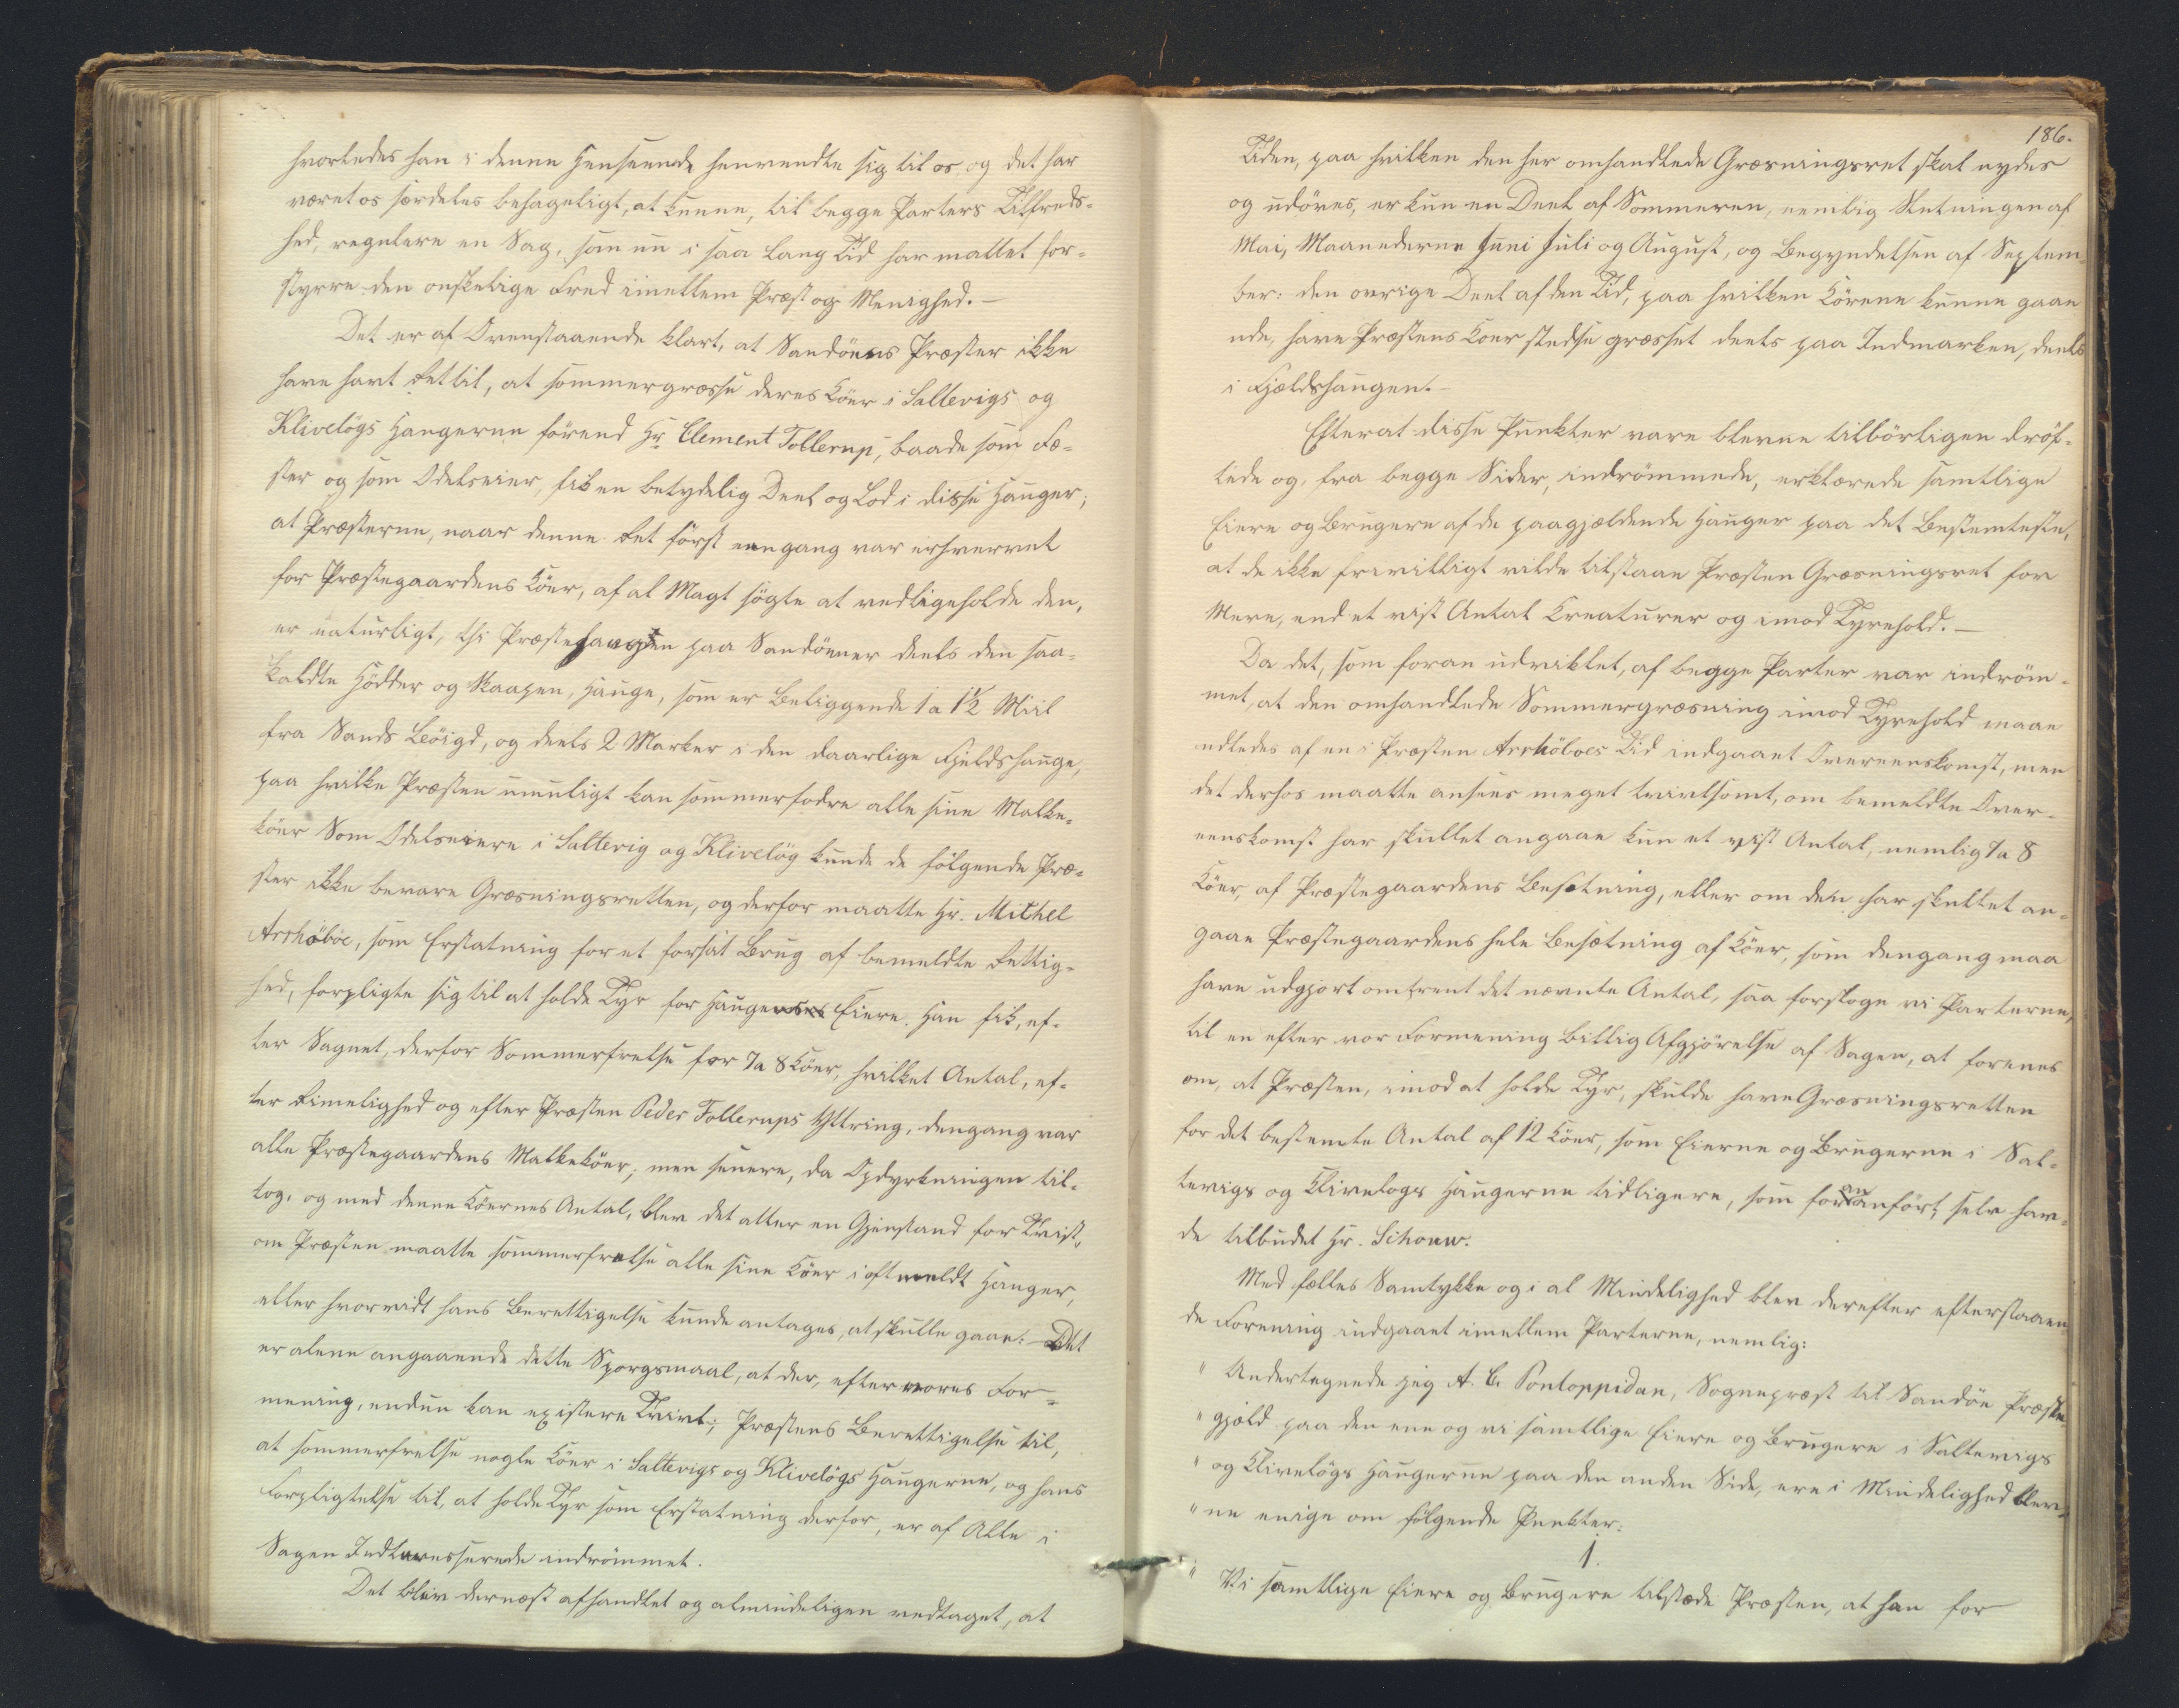 hvorledes han i denne Henseende henvendte sig til os, og det har
været os særdeles behageligt, at kunne, til begge Parters Tilfreds-
hed, regulere en Sag, som nu i saa lang Tid har mattet for-
styrre den onskelige Fred imellem Præst og Menighed.—
Det er af Ovenstaaende klart, at Sandöens Præster ikke
have havt Ret til, at sommergræsse deres Köer i Saltevigs og
Kliveløgs Haugerne förend Hr. Clement Tollerup, baade som Fæ-
ster og som Odelseier, fik en betydelig Deel og Lod i disse Hauger;
at Præsterne, naar denne Ret först eengang var erhvervet
for Præstegaardens Köer, af al Magt sögte at vedligeholde den,
er naturligt, thi Præstehaugen paa Sandöen er deels den saa-
kaldte Hödder og Skaapen, Hauge, som er beliggende 1 a 1½ Miil
fra Sands Beöigd, og deels 2 Marker i den daarlige Fjeldshauge,
paa hvilke Præsten umuligt kan sommerfodre alle sine Malke-
köer Som Odelseiere i Saltevig og Kliveløg kunde de fölgende Præ-
ster ikke bevare Græsningsretten, og derfor maatte Hr. Michel
Arrhöboe, som Erstatning for et forsat Brug af bemeldte Rettig-
hed, forpligte sig til at holde Tyr for Haugens Eiere. Han fik, ef-
ter Sagnet, derfor Sommerfrelse for 7 a 8 Köer, hvilket Antal, ef-
ter Rimelighed og efter Præsten Peder Tollerups Yttring, dengang var
alle Præstegaardens Malkeköer; men senere, da Opdyrkningen til-
tog, og med denne Köernes Antal, blev det atter en Gjenstand for Tvist,
om Præsten maatte sommerfrelse alle sine Köer i oftmeldt Hauger,
eller hvorvidt hans Berettigelse kunde antages, at skulle gaae.— Det
er alene angaaende dette Sporgsmaal, at der, efter vores For-
mening, endnu kan existere Tvivl; Præstens Berettigelse til,
at sommerfrelse nogle Köer i Saltevigs og Kliveløgs Haugerne, og hans
Forpligtelse til, at holde Tyr som Erstatning derfor, er af Alle i
Sagen Indteresserede indrömmet.
Det blev dernæst afhandlet og almindeligen vedtaget, at
186.
Tiden, paa hvilken den her omhandlede Græsningsret skal nydes
og udöves, er kun en Deel af Sommeren, nemlig Slutningen af
Mai, Maanederne Juni Juli og August, og Begyndelsen af Septem-
ber: den ovrige Deel af den Tid, paa hvilken Körene kunne gaae
ude, have Præstens Koer stedse græsset deels paa Indmarken, deels
i Fjældshaugen.—
Efterat disse Punkter vare blevne tilbörligen dröf-
tede og, fra begge Sider, indrömmede, erklærede samtlige
Eiere og Brugere af de paagjældende Hauger paa det Bestemteste,
at de ikke frivilligt vilde tilstaae Præsten Græsningsret for
Mere, end et vist Antal Creaturer og imod Tyrehold.—
Da det, som foran udviklet, af begge Parter var indröm-
met, at den omhandlede Sommergræsning imod Tyrehold maae
udledes af en i Præsten Arrhöboes Tid indgaaet Overeenskomst, men
det derhos maatte ansees meget tvivlsomt, om bemeldte Over-
eenskomst har skullet angaae kun et vist Antal, nemlig 7 a 8
Köer, af Præstegaardens Besætning, eller om den har skullet an-
gaae Præstegaardens hele Besætning af Köer, som dengang maa
have udgjort omtrent det nævnte Antal, saa forsloge vi Parterne,
til en efter vor Formening billig Afgjörelse af Sagen, at forenes
om, at Præsten, imod at holde Tyr, skulde have Græsningsretten
for det bestemte Antal af 12 Köer, som Eierne og Brugerne i Sal-
tevigs og Klivelogs Haugerne tidligere, som foran anfört, selv hav-
de tilbudet Hr. Schouw.
Med fælles Samtykke og i al Mindelighed blev derefter efterstaaen-
de Forening indgaaet imellem Parterne, nemlig:
" Undertegnede jeg A. C. Pontoppidan, Sognepræst til Sandöe Præste-
" gjæld paa den ene og vi samtlige Eiere og Brugere i Saltevigs
" og Klivelögs Haugerne paa den anden Side, ere i Mindelighed blev-
" ne enige om fölgende Punkter:
1.
" Vi samtlige Eiere og Brugere tilstede Præsten, at han for